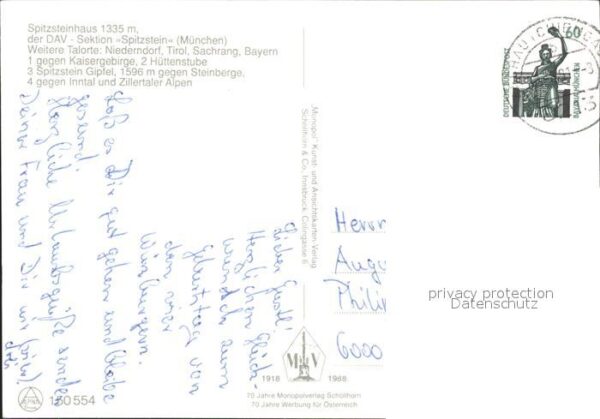 Spitzsteinhaus 1335 m,
der DAV - Sektion »Spitzstein« (München)
Weitere Talorte: Niederndorf, Tirol, Sachrang, Bayern
1 gegen Kaisergebirge, 2 Hüttenstube
3 Spitzstein Gipfel, 1596 m gegen Steinberge,
4 gegen Inntal und Zillertaler Alpen
60
DEUTSCHE BUNDESPOST
BAVARIA MÜNCHEN
„Monopol" Kunst- und Ansichtskarten Verlag
Schöllhorn & Co. Innsbruck, Colingasse 6
Lieber Gustl!
Herzlichen Glück-
wunsch zum
Geburtstag von
den vier
Würzburgern.
Laß es Dir gut gehen und bleibe
gesund!
Herzliche Urlaubsgrüße senden
Deiner Frau und Dir
Herrn
Philip
6000
privacy protection
Datenschutz
M V
1918 1988
70 Jahre Monopolverlag Schöllhorn
70 Jahre Werbung für Österreich
150 554